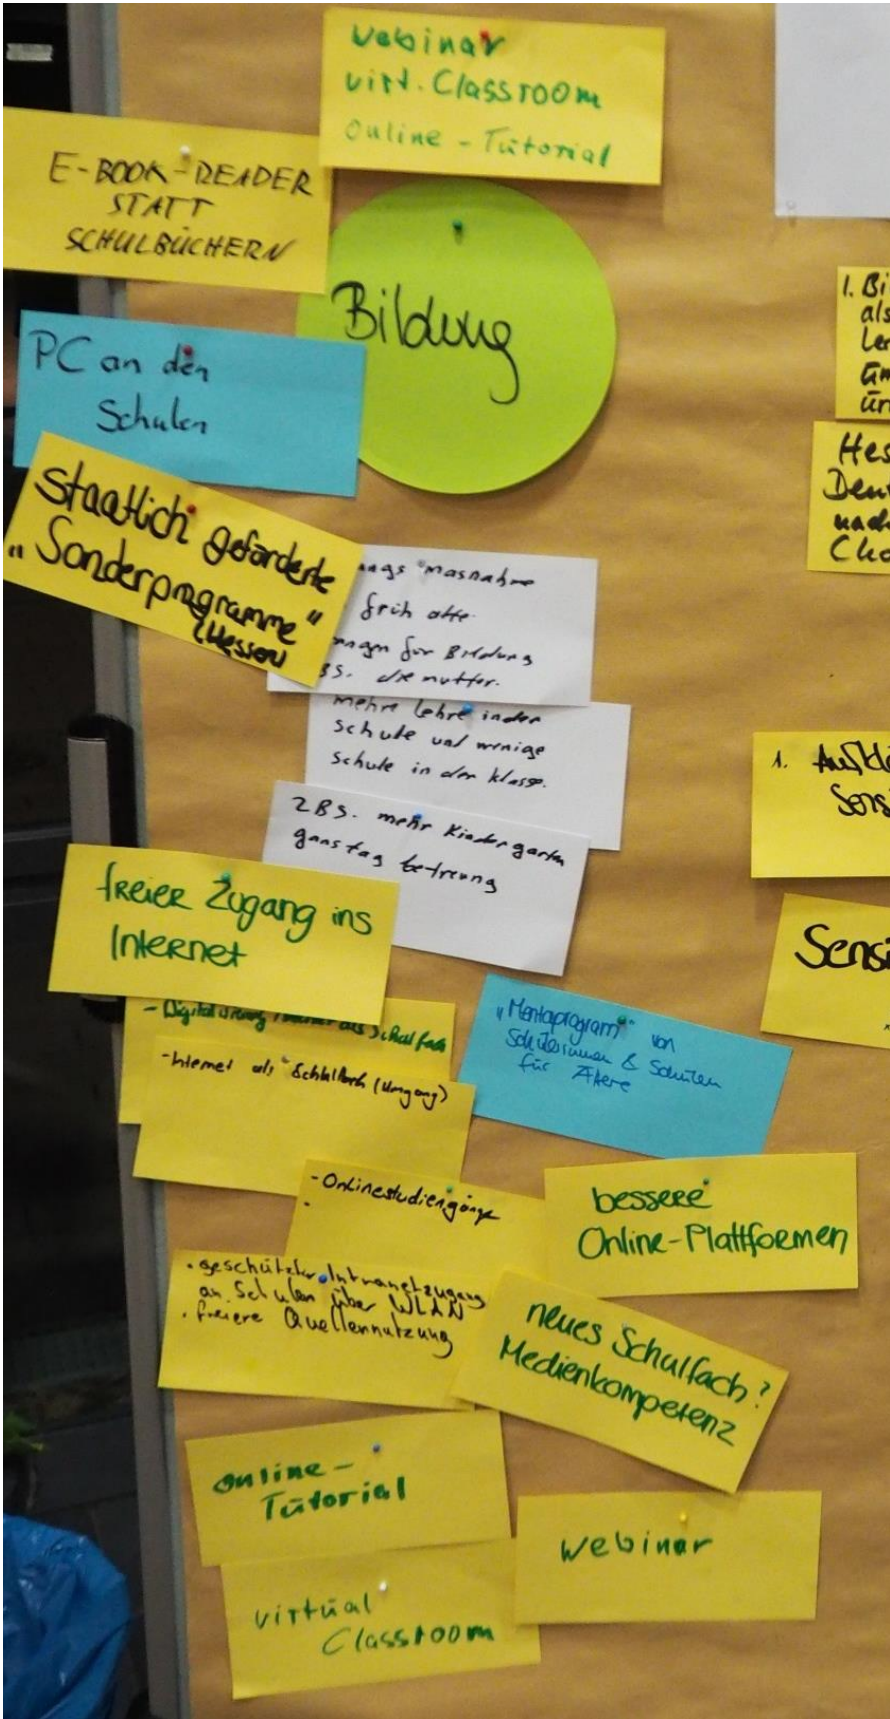 webinar
virt. Classroom
Online - Tutorial
E-BOOK-READER
STATT
SCHULBÜCHERN
Bildung
PC an den
Schulen
Staatlich geförderte
"Sonderprogramme"
(Hessen)
masnahme
früh
für Bildung
die mutter.
mehre lehre in der
schule und wenige
schule in der klasse.
ZBS. mehr Kindergarten
ganstag betreung
freier Zugang ins
Internet
- Digitalisierung als Schulfach
- Internet als Schulfach (Umgang)
"Mentaprogram" von
Schülerinnen & Schülern
für Ältere
- Onlinestudiengänge
-
bessere
Online-Plattformen
• geschützter Intranetzugang
an Schulen über WLAN
• freiere Quellennutzung
neues Schulfach?
Medienkompetenz
online-
Tutorial
webinar
virtual
Classroom
1. Bi
als
Ler
Hes
nach
1.
Sensi